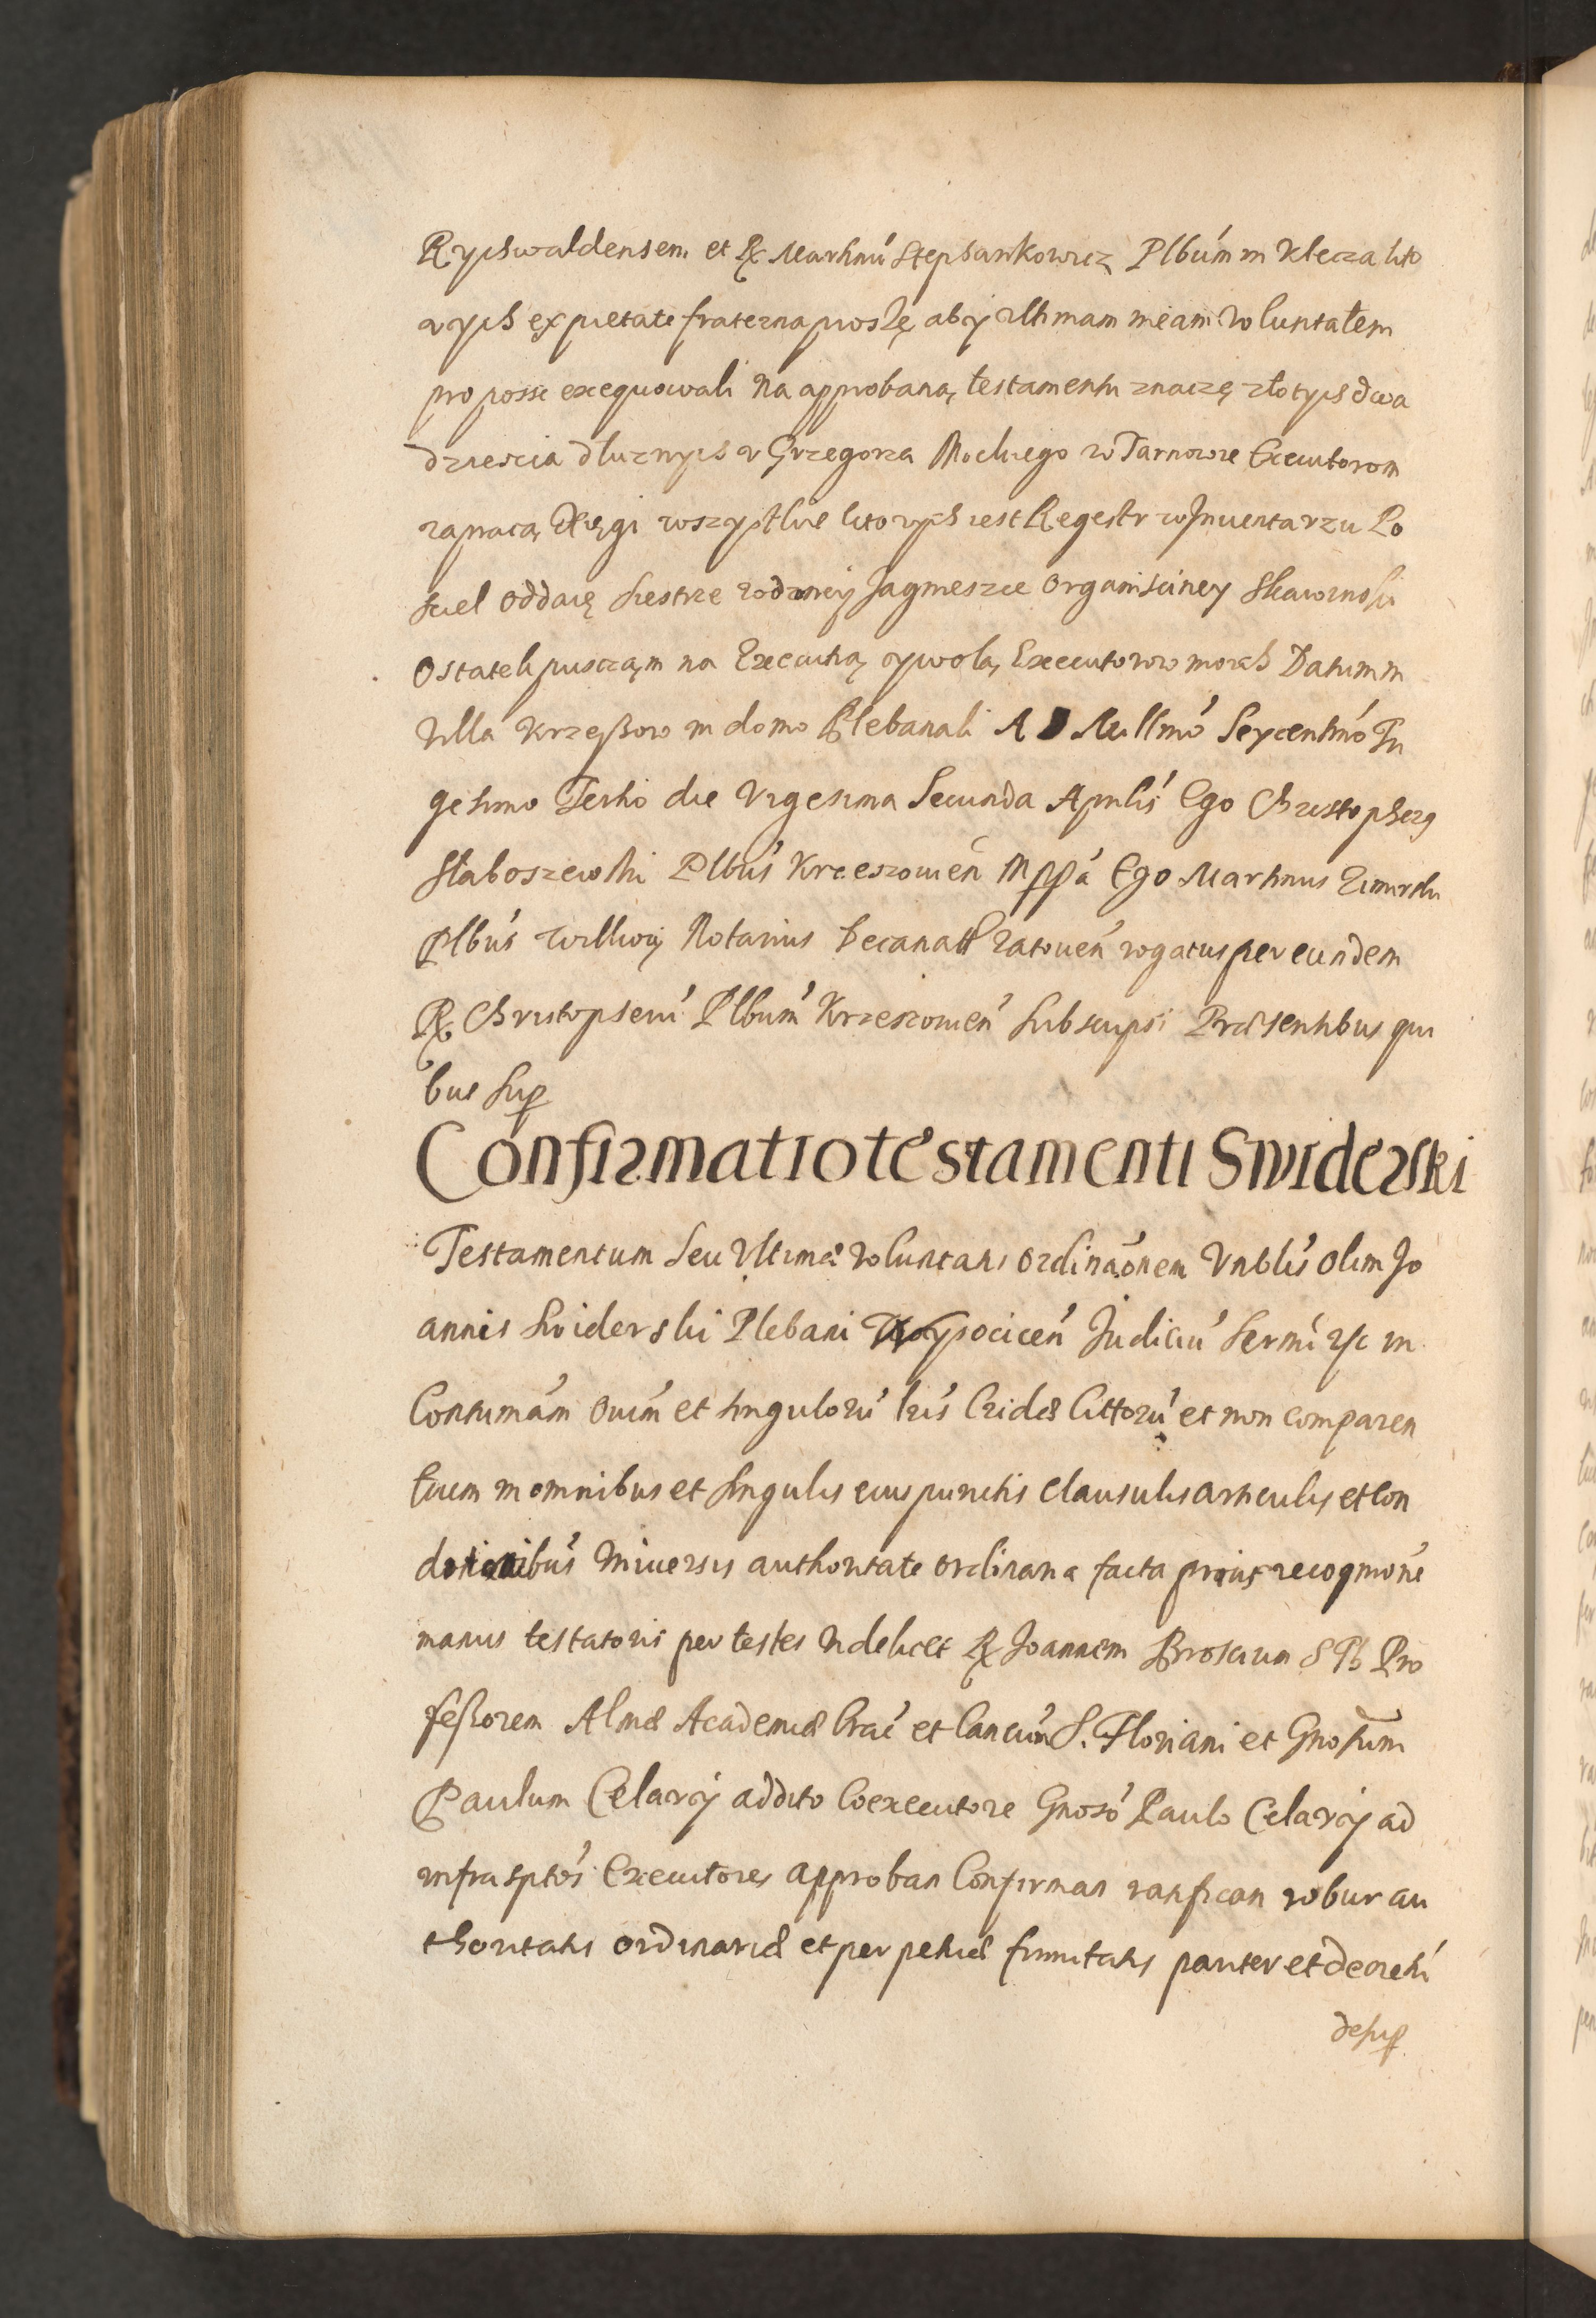 Rychwaldensem et R. Martinú Stephankowicz Plbúm in Klecza kto
rych ex pietate fraterna proszę aby ultimam meam voluntatem
pro posse exequowali Na approbaną testamentu znaczę złotych dwa
dziescia dłuznych v Grzegorza Mockiego w Tarnowie Executorom
zapłacą Xięgi wszystkie ktorych iest Regestr w Inuentarzu Po
sciel oddaię siestrze rodzoney Jagnieszce Organisciney Skawinski
Ostatek pusczam na Executią y wolą Executorow moich Datum in
Villa Krzeszow in domo Plebanali A D Millmó Sexcentmó Tri
gesimo Tertio die Vigesima Secunda Aprilis Ego Christopherus
Słaboszewski Plbús Krzeszouien Mppá Ego Martinus Zimirski
Plbús Notarius Decanatus Zatouień rogatus per eundem
R. Christopherú Plbúm Krzeszouien Subscripsi Praesentibus qui
bus sup
Confirmatio testamenti Swiderski
Testamentum seu Ultimae Voluntatis ordinaónem Vnblis olim Jo
annis Swiderski Plebani Wysocicen Judiciú Sermi etc in
Contumám oniúm et singulorú hús Cridae Cittorú et non comparen
tium in omnibus et singulis eius punctis clausulis articulis et con
ditionibus Vniuersis authoritate ordinaria facta prius recognoné
manus testatoris per testes videlicet R. Joannem Broscium S Th Pro
feßorem Almae Academiae Crac et Canoún S. Floriani et Gnosum
Paulum Celary addito Coexecutore Gnoso Paulo Celary ad
infrasptos Executores approban Confirman ratifican robur au
thoritatis ordinariae et perpetuae firmitatis pariter et decreti
desup